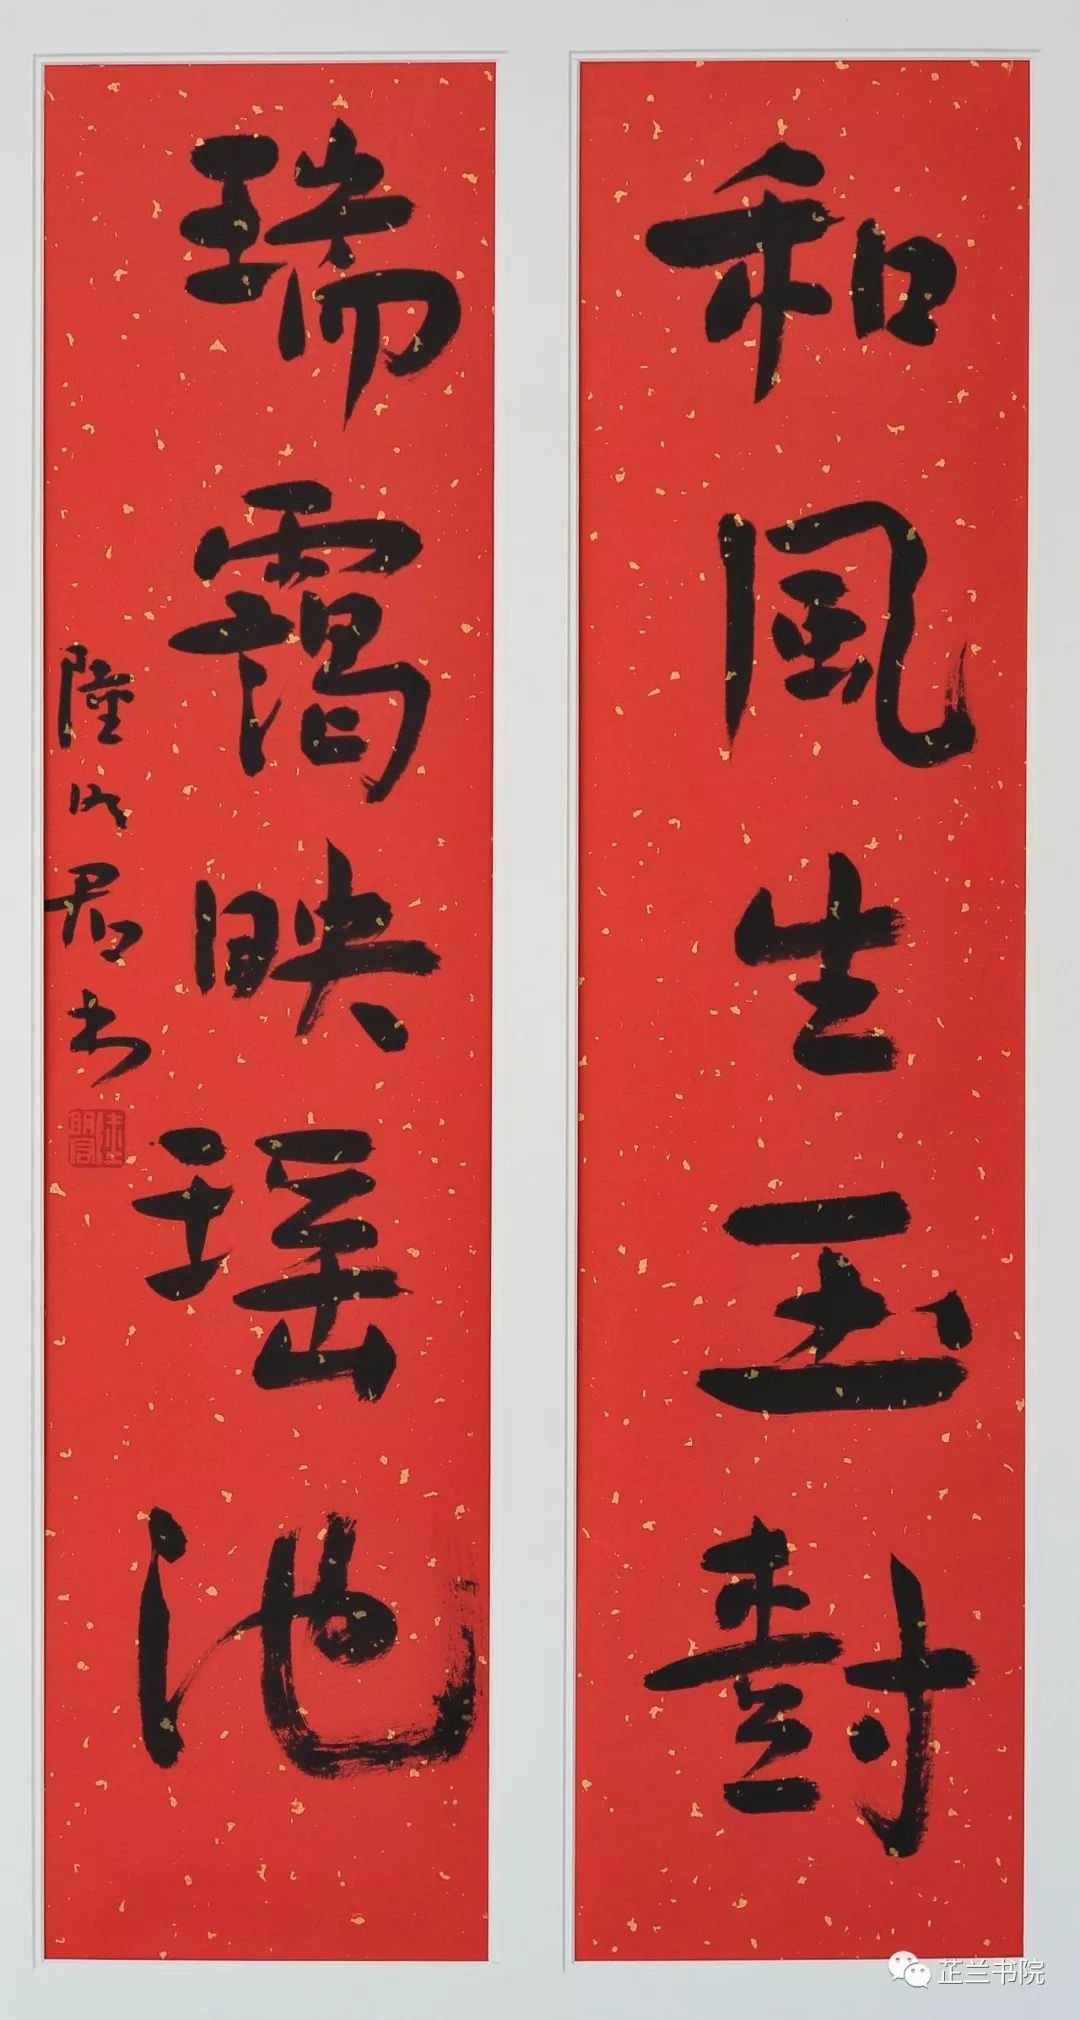 和風生玉樹
瑞靄映瑤池
陸明君書
芷兰书院